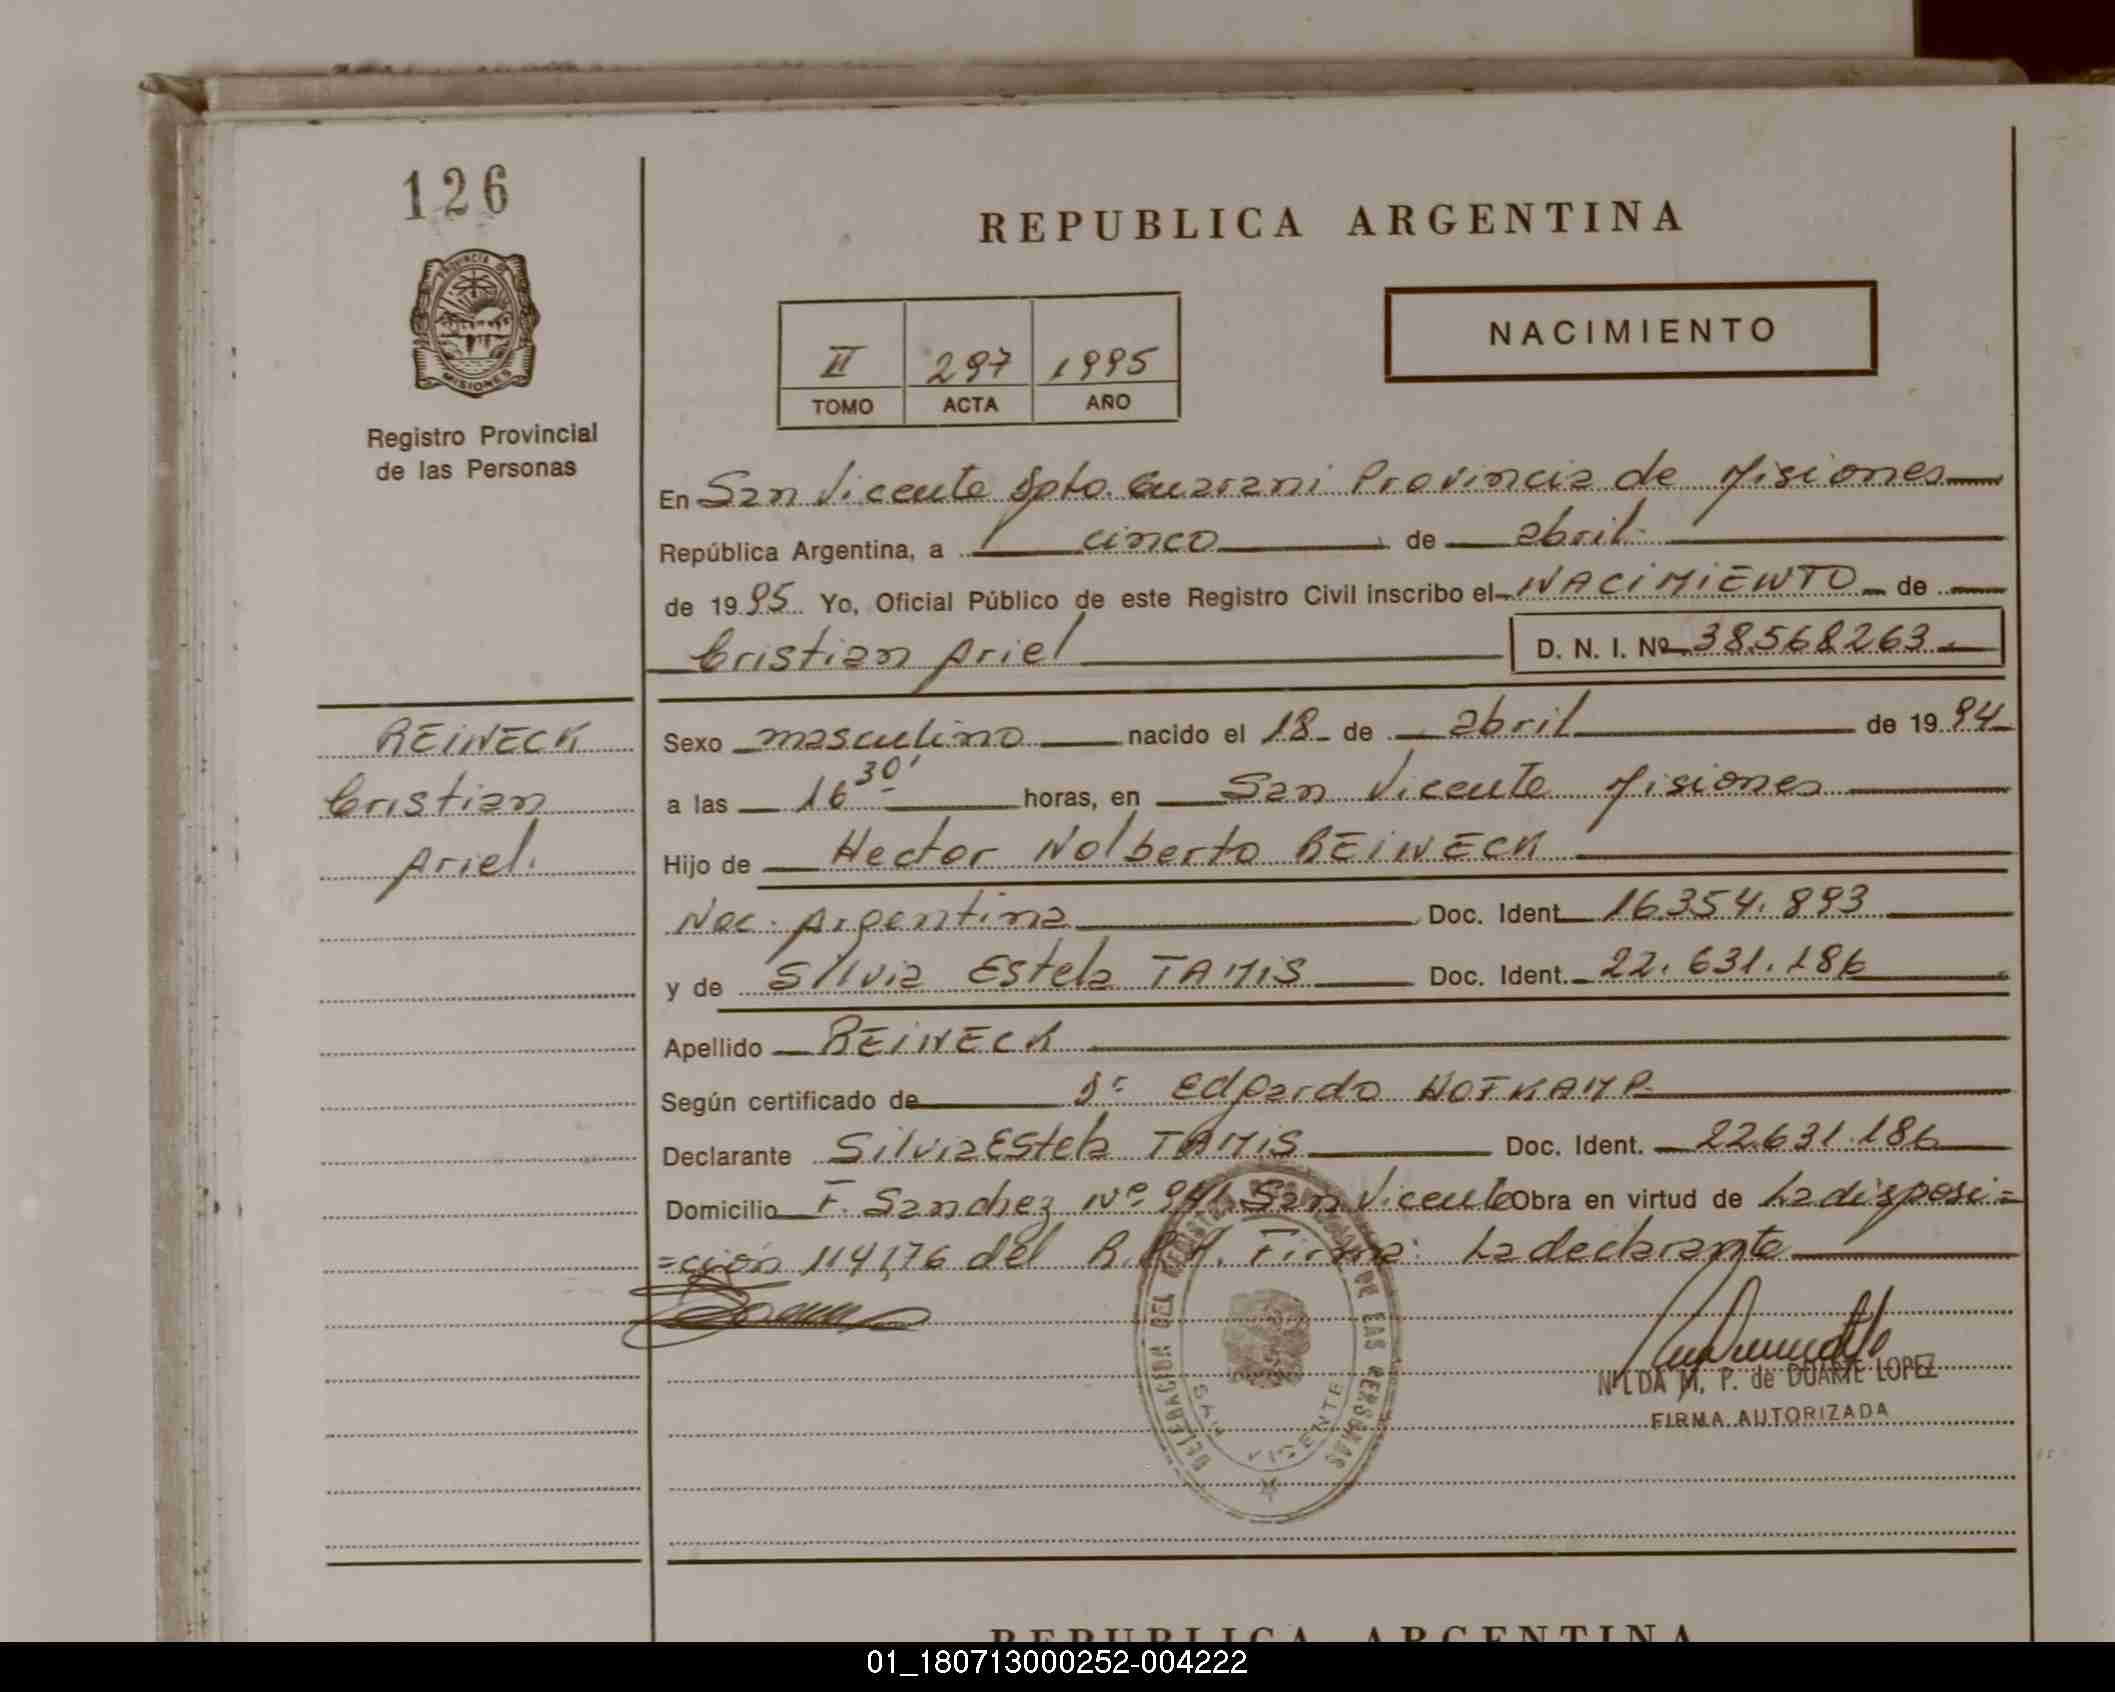 126
REPUBLICA ARGENTINA
PROVINCIA DE
MISIONES
Registro Provincial
de las Personas
NACIMIENTO
II 297 1995
TOMO ACTA AÑO
En San Vicente Dpto. Guaraní Provincia de Misiones
República Argentina, a cinco de abril
de 1995 Yo, Oficial Público de este Registro Civil inscribo el NACIMIENTO de
Cristian Ariel D. N. I. Nº 38.568.263
REINECK
Cristian
Ariel.
Sexo masculino nacido el 18 de abril de 1994
a las 16 30' horas, en San Vicente Misiones
Hijo de Hector Nolberto REINECK
Nac. Argentina Doc. Ident. 16.354.893
y de Silvia Estela TAMIS Doc. Ident. 22.631.186
Apellido REINECK
Según certificado de Dr. Edgardo HOFKAMP
Declarante Silvia Estela TAMIS Doc. Ident. 22.631.186
Domicilio F. Sanchez Nº 941 San Vicente Obra en virtud de La disposi=
=ción 114/76 del R.P.P. Firma: La declarante
DELEGACION DEL REGISTRO PROVINCIAL DE LAS PERSONAS
SAN VICENTE
NILDA M. P. de DUARTE LOPEZ
FIRMA AUTORIZADA
REPUBLICA ARGENTINA
01_180713000252-004222